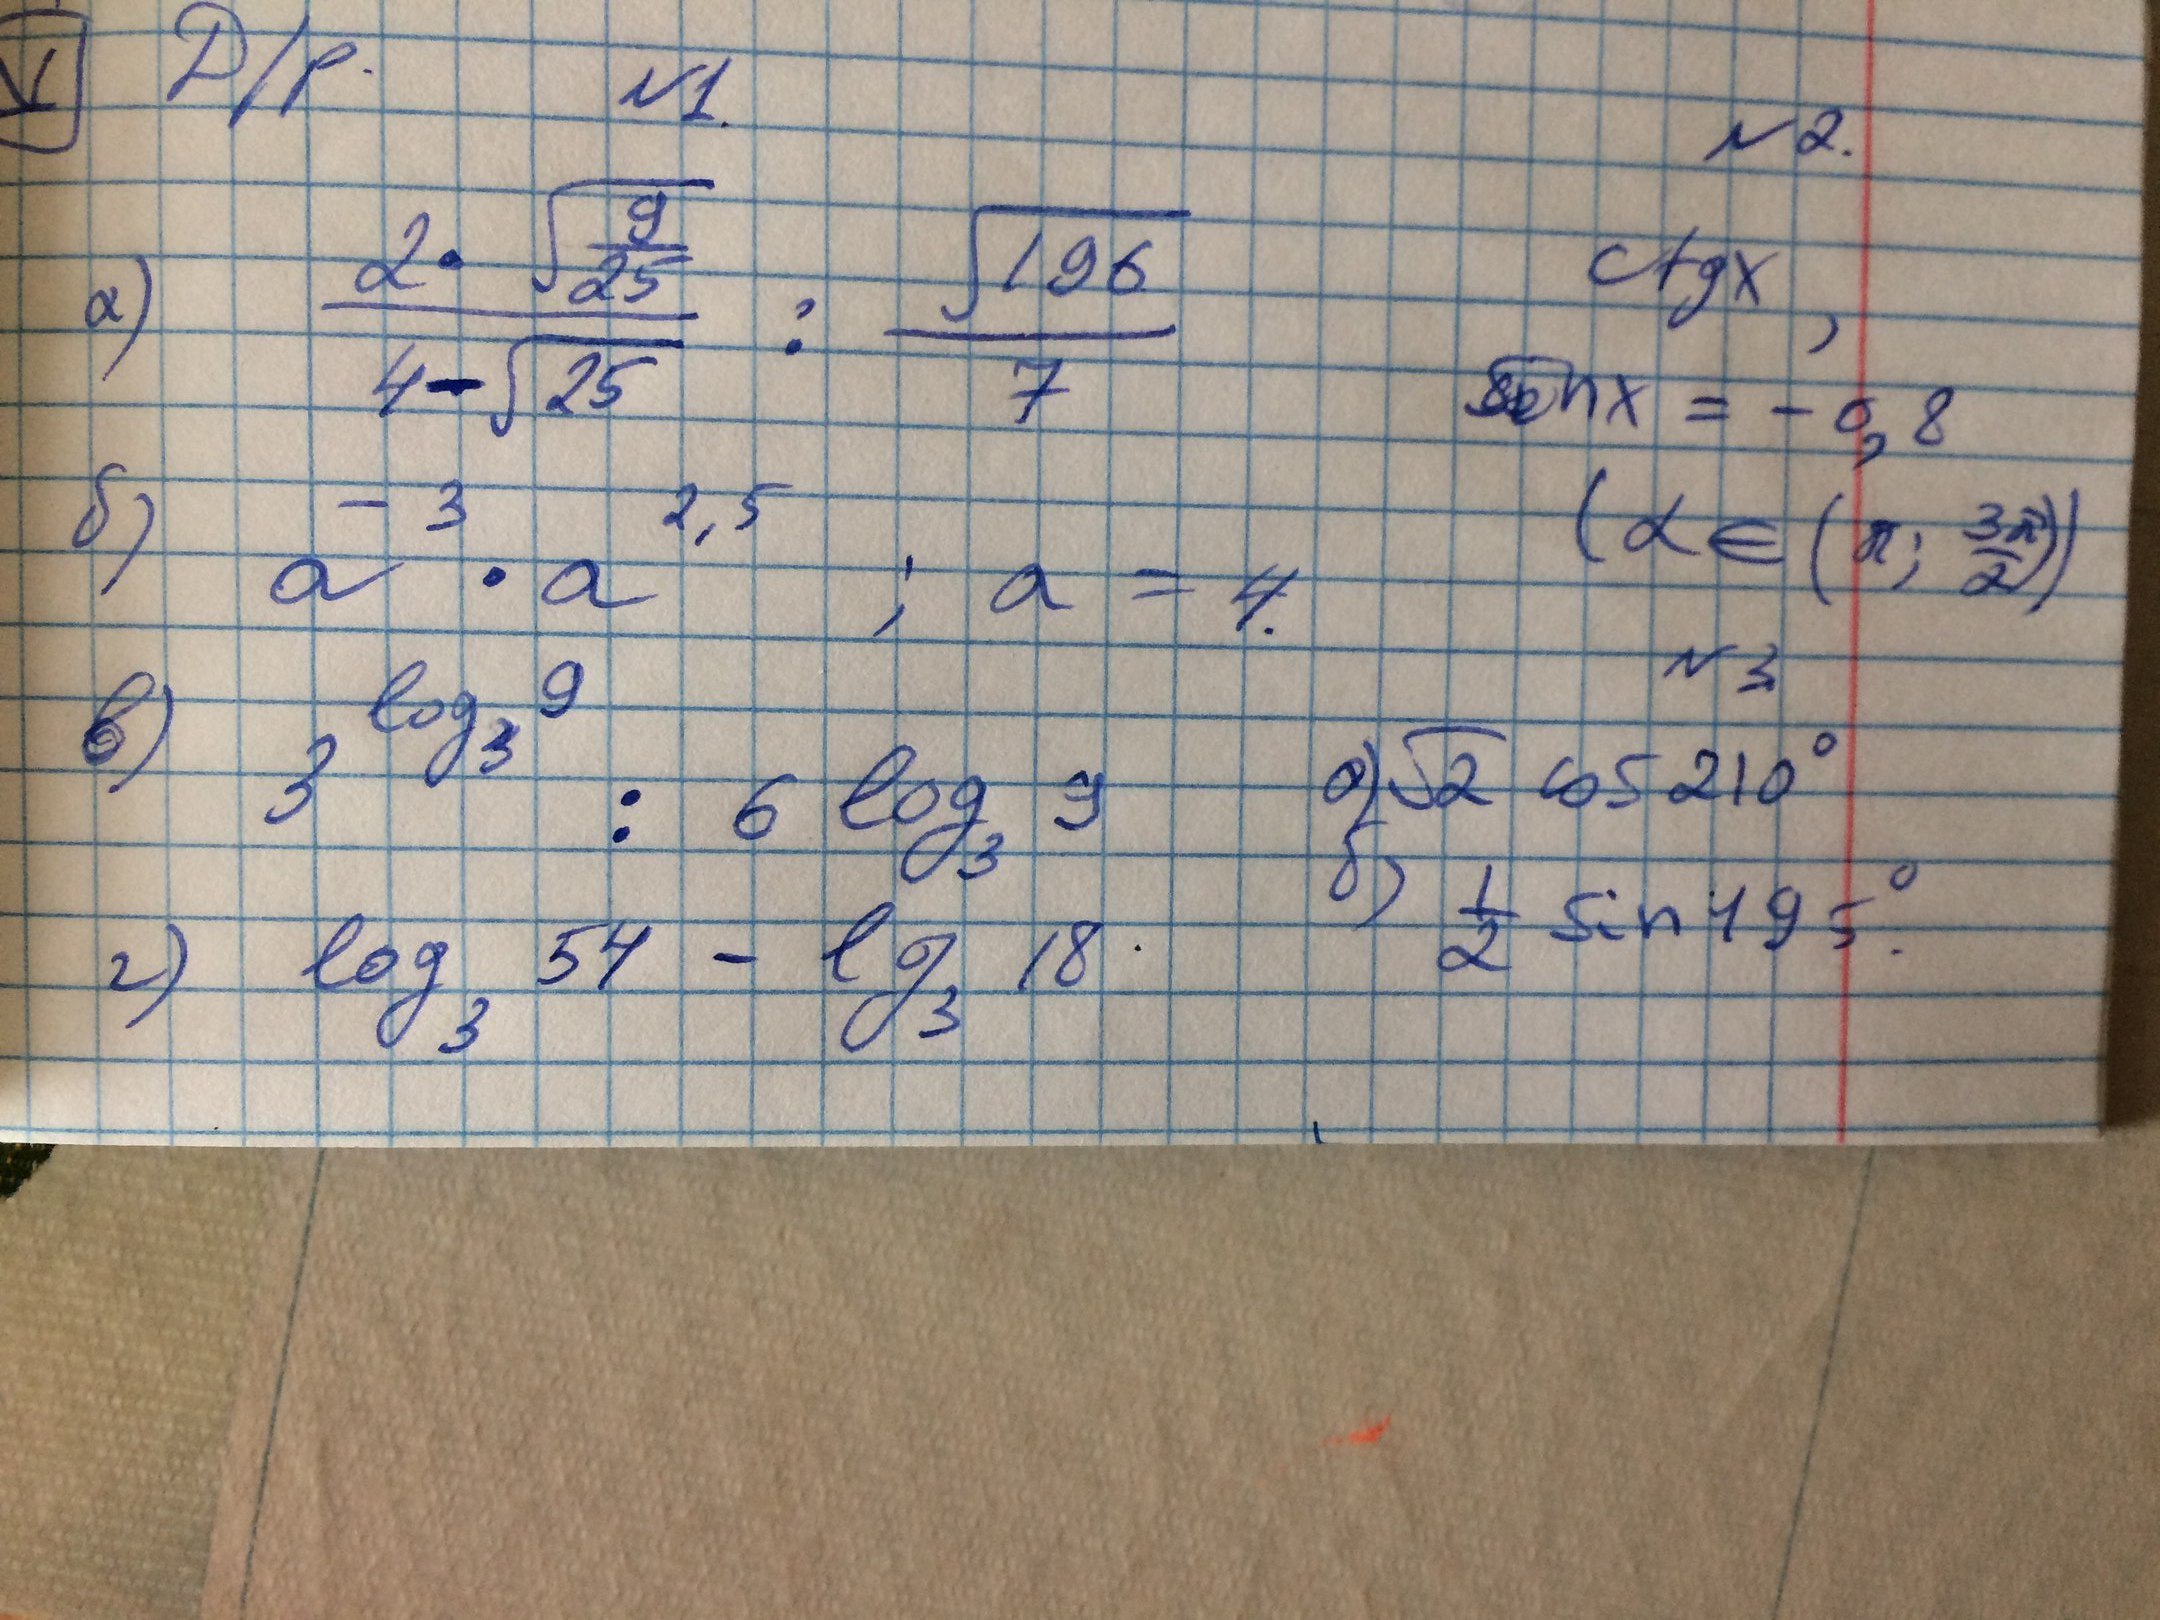 Д/р.
N1.
а) 2·√(9/25) / (4-√25) : √196 / 7
б) a^(-3) · a^(2,5) ; a = 4.
в) 3^(log₃ 9) : 6 log₃ 9
г) log₃ 54 - lg₃ 18.
N2.
ctgx,
sinx = -0,8
(α ∈ (π; 3π/2))
N3
а) √2 cos 210°
б) 1/2 sin 495°.